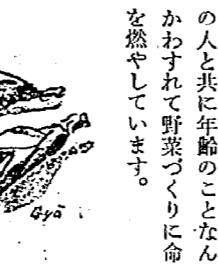 の人と共に年齢のことなん
かわすれて野菜づくりに命
を燃やしています。
Gyō